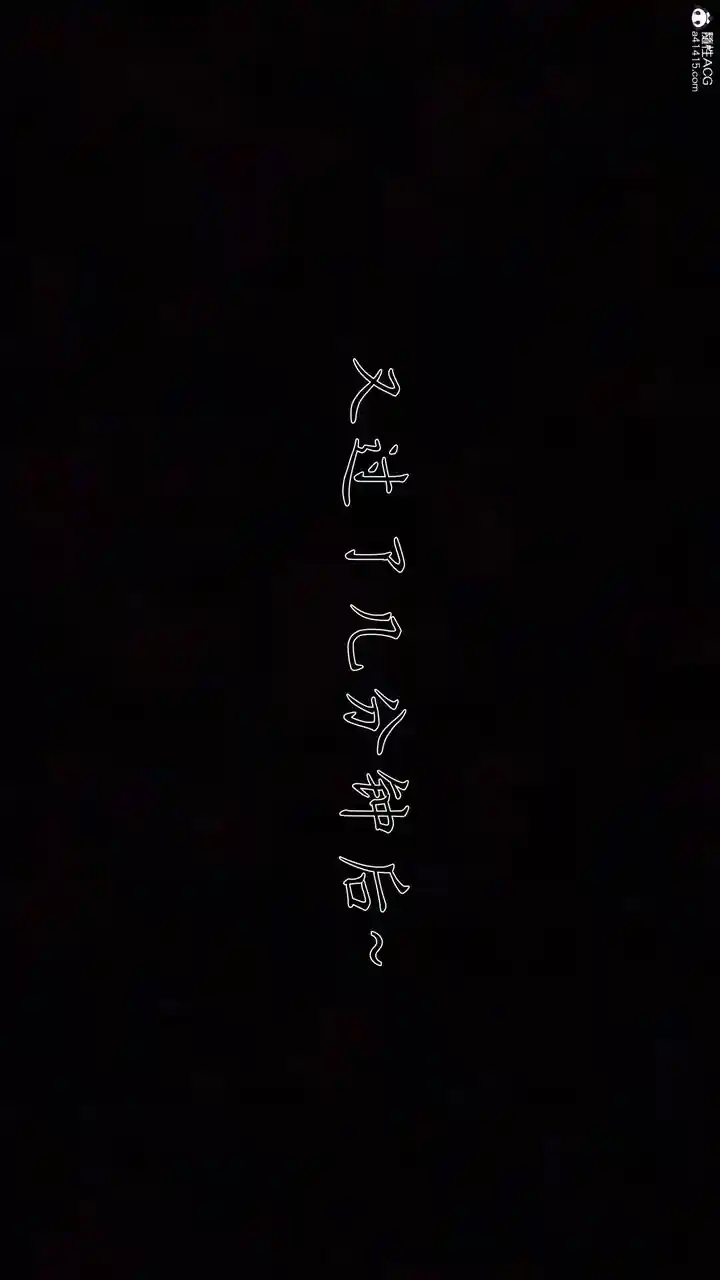 隨性ACG
a41415.com
又过了几分钟后~